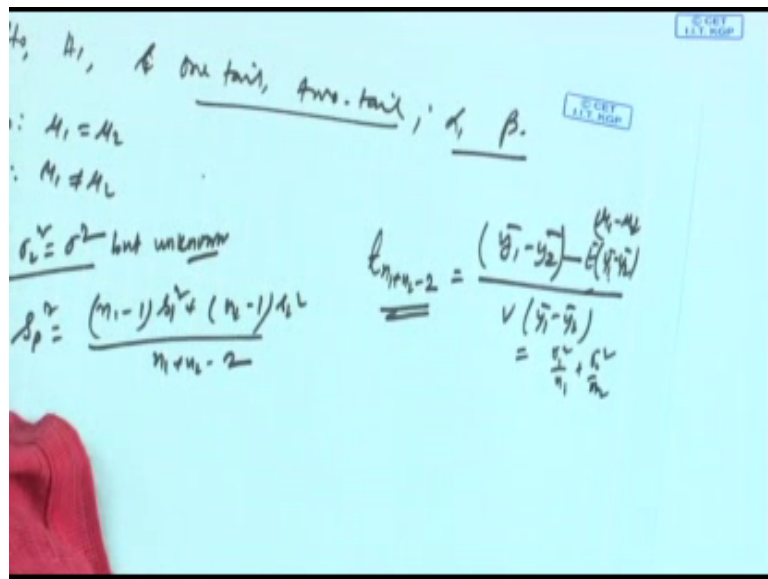 © CET
I.I.T. KGP
H₁, & one tail, two-tail; α, β.
© CET
I.I.T. KGP
: μ₁ = μ₂
: μ₁ ≠ μ₂
σ₂² = σ² but unknown
Sₚ² = ((n₁-1) s₁² + (n₂-1) s₂²) / (n₁+n₂-2)
t n₁+n₂-2 = ((ȳ₁-ȳ₂) - E(ȳ₁-ȳ₂)) / V(ȳ₁-ȳ₂)
(μ₁-μ₂)
= σ₁²/n₁ + σ₂²/n₂